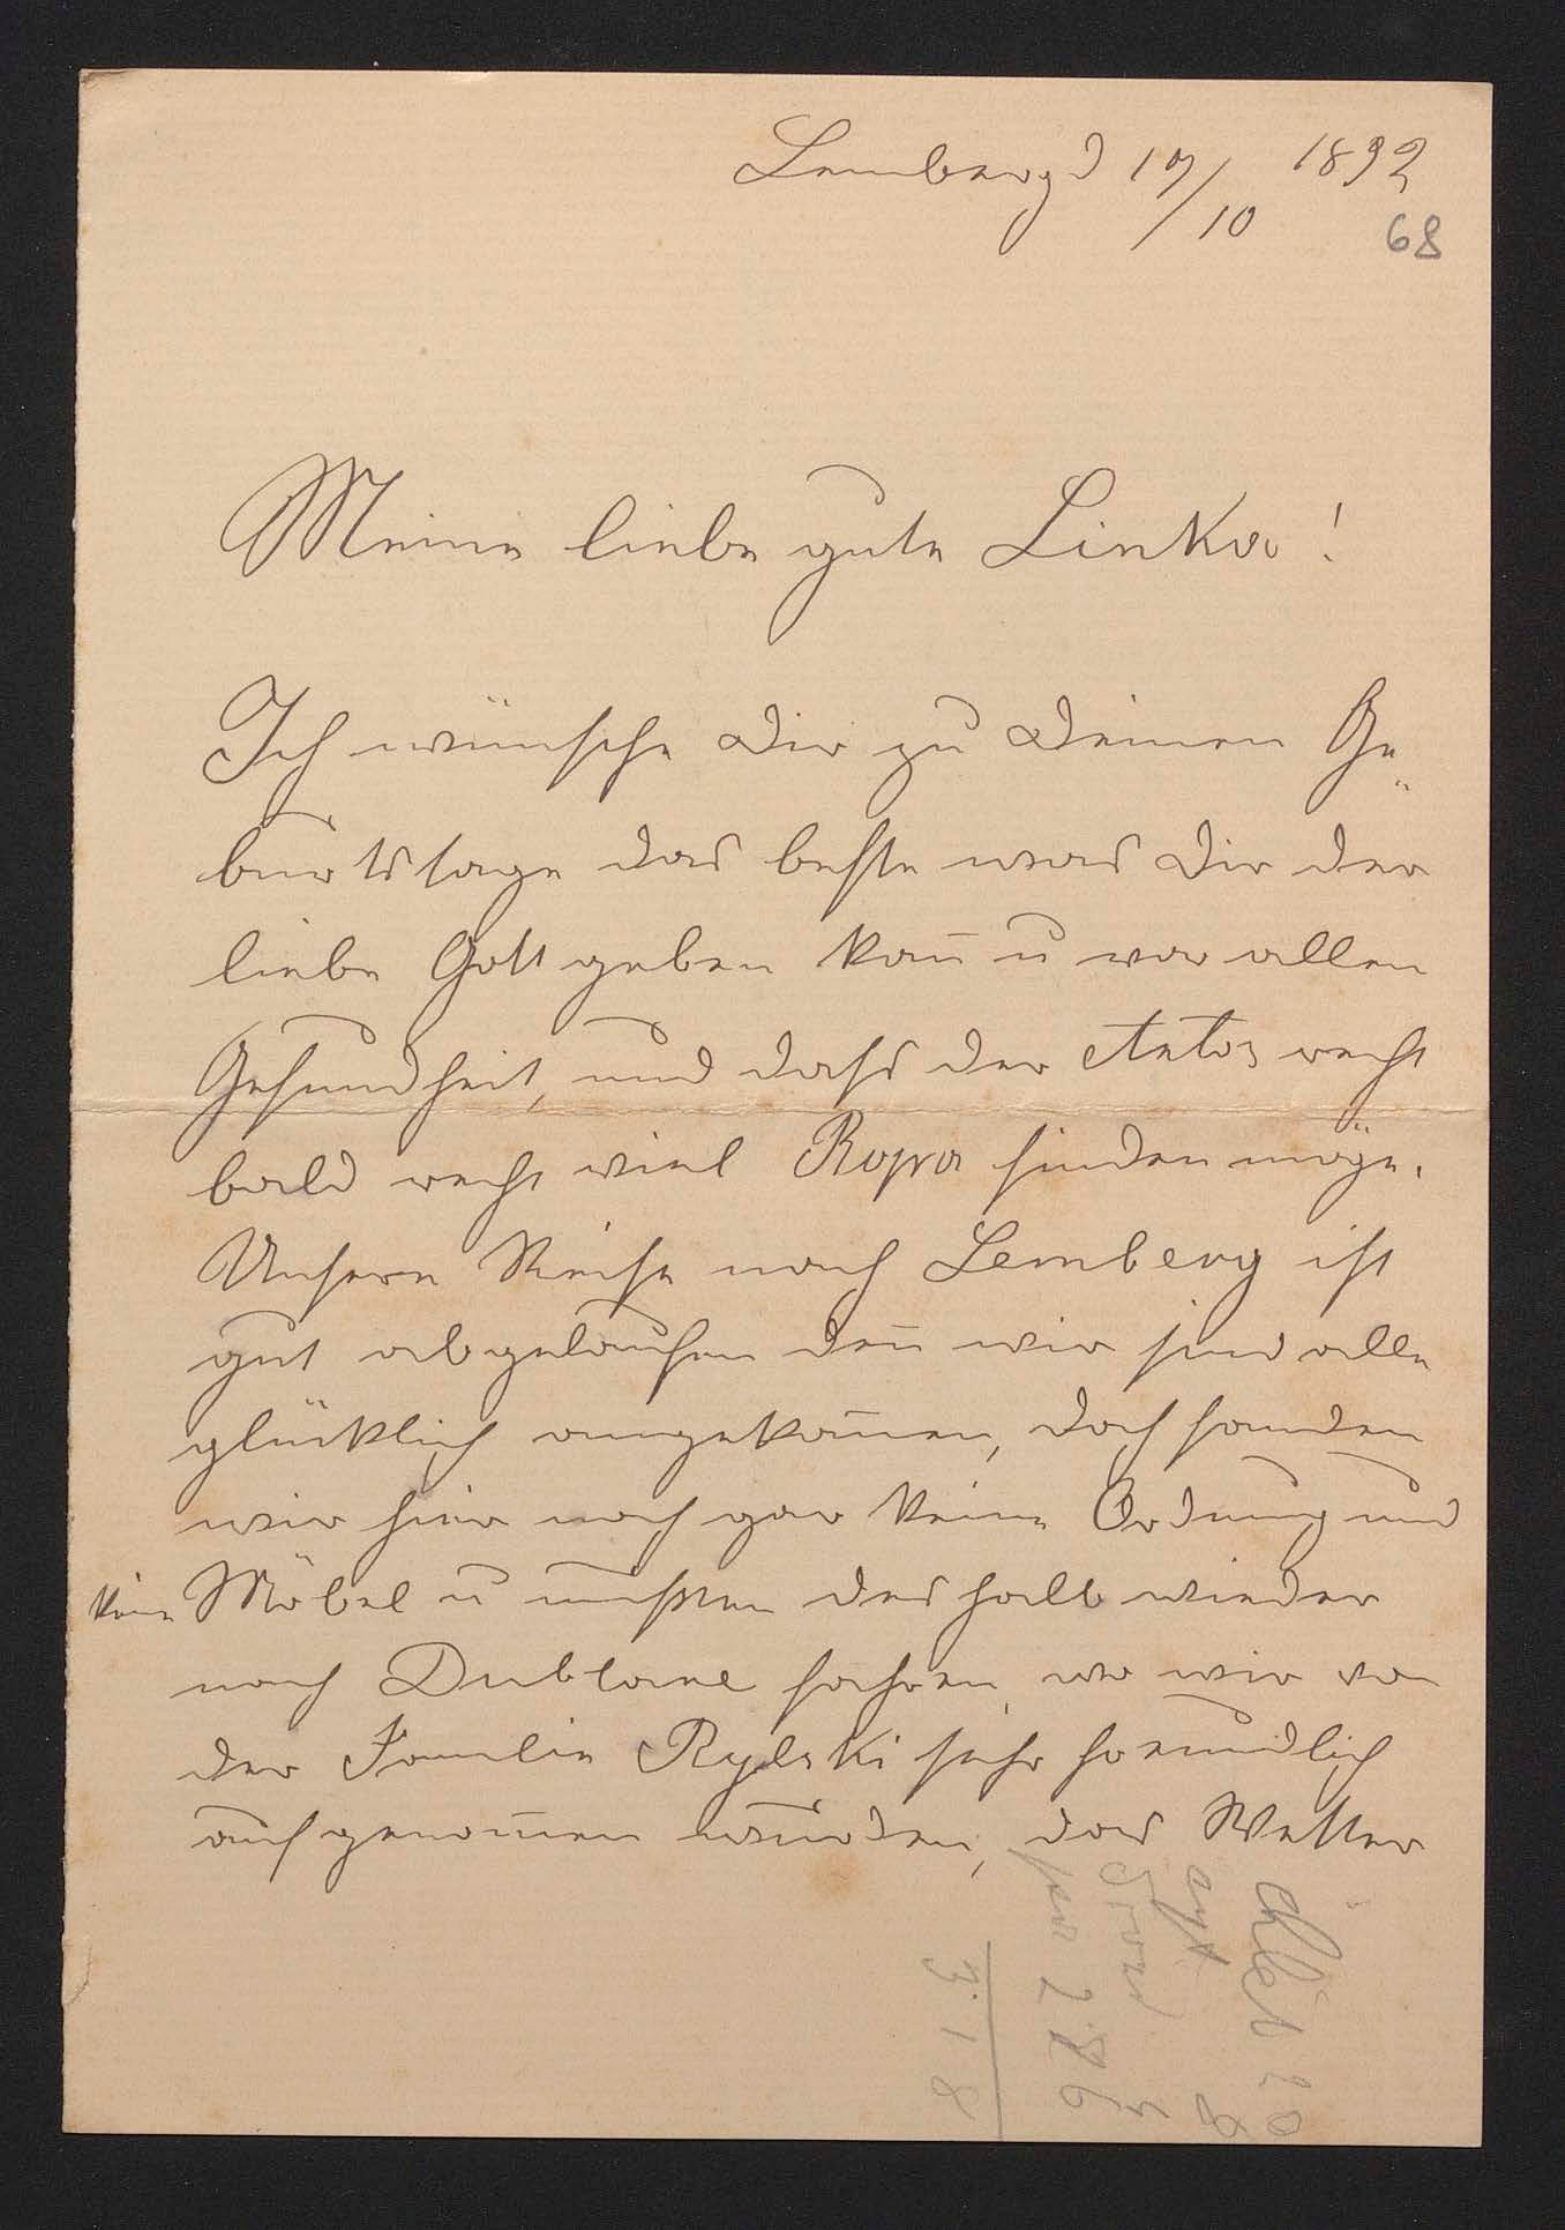 Lemberg d 17/10 1892
68
Meine liebe gute Linka!
Ich wünsche Dir zu Deinen Ge„
burtstage das beste was Dir der
liebe Gott geben kan̄ u vor allen
Gesundheit, und dass der Antos recht
bald recht viel Ropa finden möge.
Unsere Reise nach Lemberg ist
gut abgelaufen den̄ wir sind alle
glücklich angekom̄en, doch fanden
wir hier noch gar keine Ordnung und
keine Möbel u mußten deshalb wieder
nach Dublane fahren, wo wir von
der Familie Rylski sehr freundlich
aufgenom̄en wurden, das Wetter
20
8
5
2 86
3 18